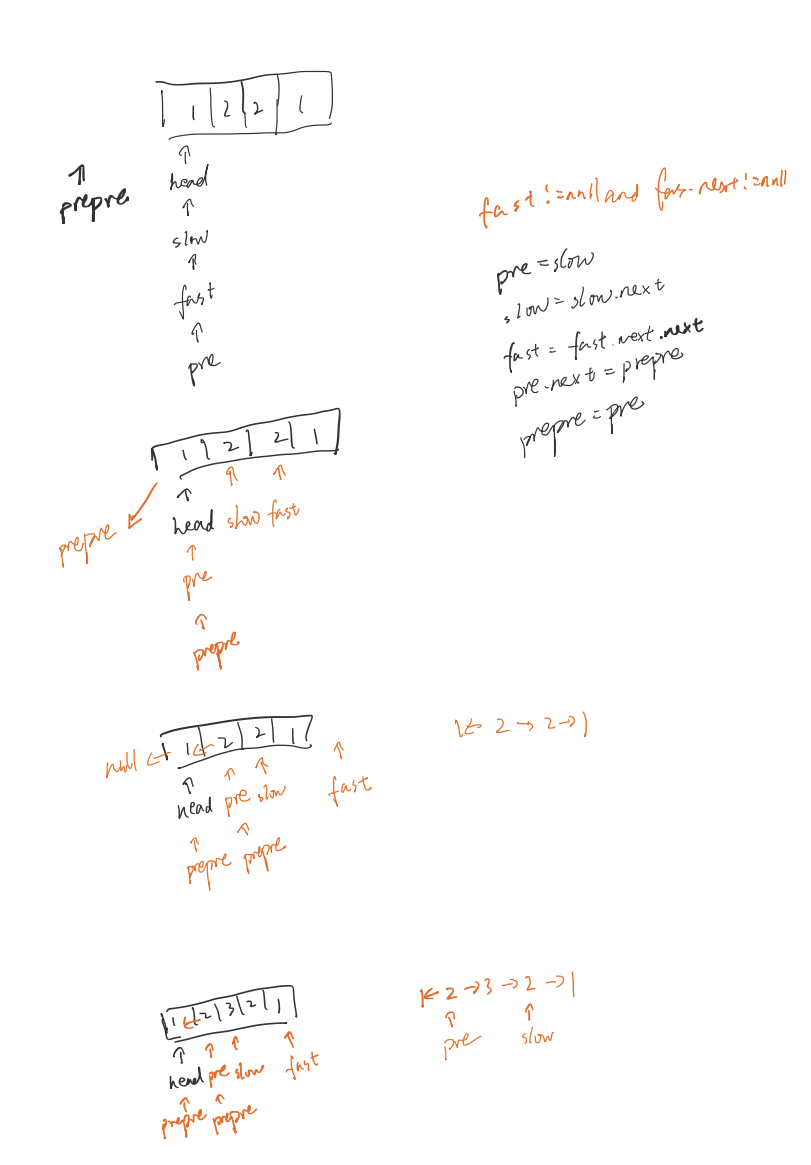 1 2 2 1
head
prepre
slow
fast
pre
fast != null and fas.next != null
pre = slow
slow = slow.next
fast = fast.next.next
pre.next = prepre
prepre = pre
1 2 2 1
prepre
head slow fast
pre
prepre
null ← 1 ← 2 2 1
head pre slow fast
prepre prepre
1 ← 2 → 2 → 1
1 ← 2 3 2 1
head pre slow fast
prepre prepre
1 ← 2 → 3 → 2 → 1
pre slow